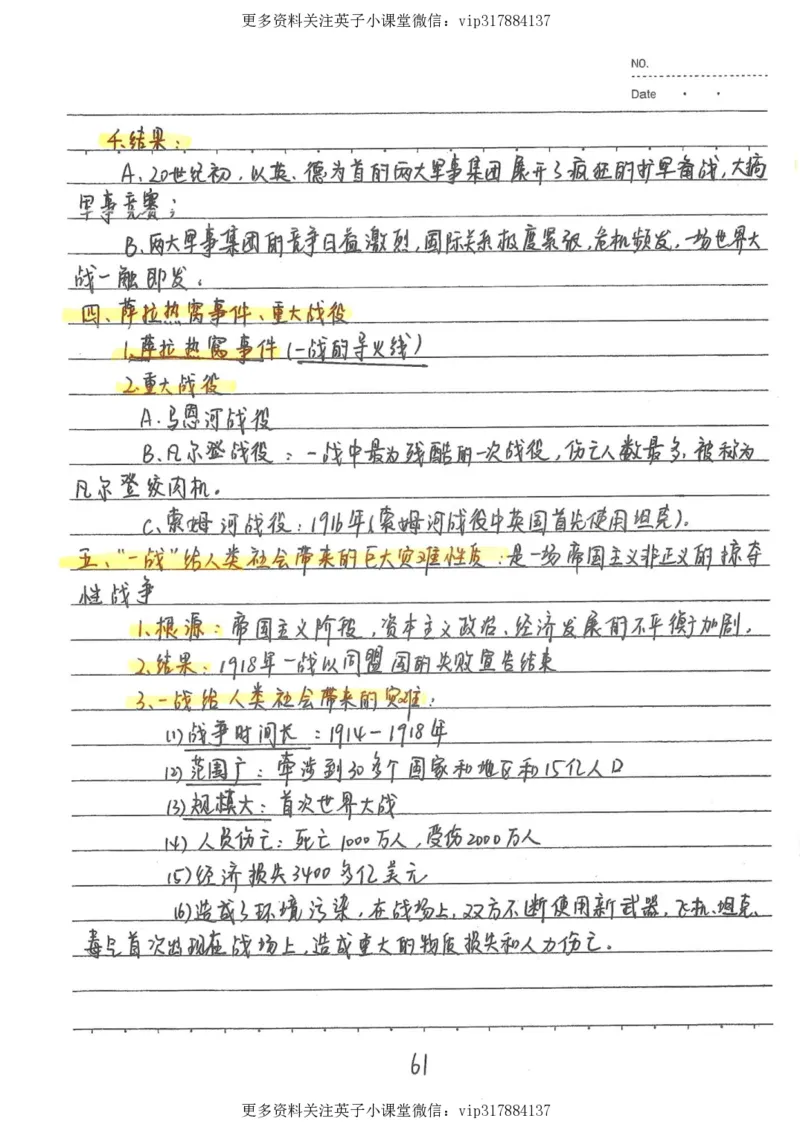 更多资料关注英子小课堂微信：vip317884137
NO.
Date
4.结果：
A、20世纪初，以英、德为首的两大军事集团展开了疯狂的扩军备战，大搞
军事竞赛；
B、两大军事集团的竞争日益激烈，国际关系极度紧张，危机频发，一场世界大
战一触即发。
四、萨拉热窝事件、重大战役
1.萨拉热窝事件（一战的导火线）
2.重大战役
A.马恩河战役
B.凡尔登战役：一战中最为残酷的一次战役，伤亡人数最多，被称为
凡尔登绞肉机。
C、索姆河战役：1916年（索姆河战役中英国首先使用坦克）。
五、“一战”给人类社会带来的巨大灾难性质：是一场帝国主义非正义的掠夺
性战争
1、根源：帝国主义阶段，资本主义政治、经济发展的不平衡加剧。
2.结果：1918年一战以同盟国的失败宣告结束
3、一战给人类社会带来的灾难：
(1)战争时间长：1914-1918年
(2)范围广：牵涉到30多个国家和地区和15亿人口
(3)规模大：首次世界大战
(4)人员伤亡：死亡1000万人，受伤2000万人
(5)经济损失3400多亿美元
(6)造成了环境污染，在战场上，双方不断使用新武器，飞机、坦克、
毒气首次出现在战场上，造成重大的物质损失和人力伤亡。
61
更多资料关注英子小课堂微信：vip317884137